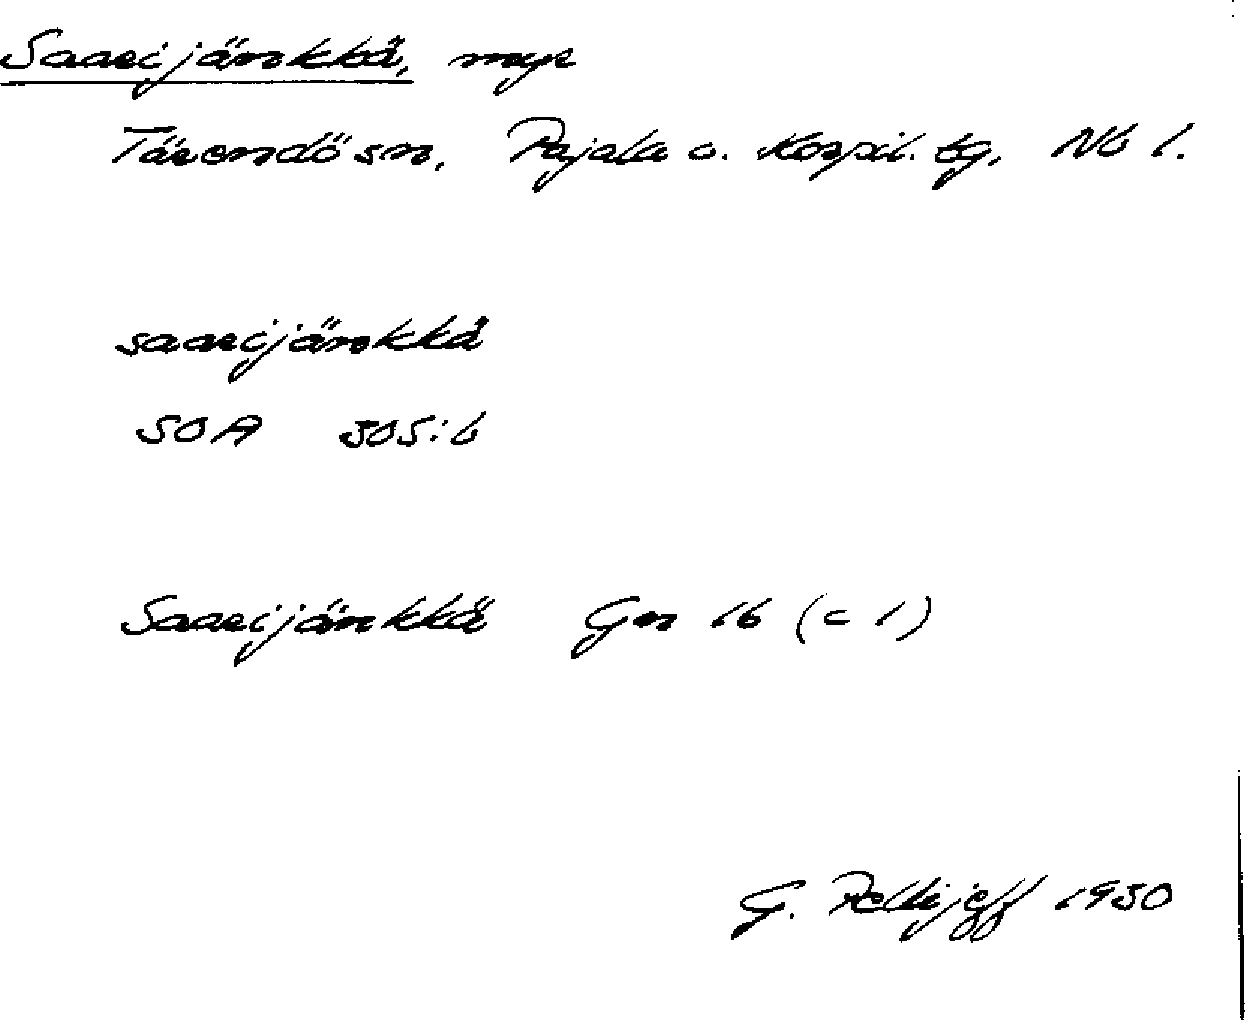 Saarijänkkä, myr
Tärendö sn, Pajala o. Korpil. tg, Nb l.
saarijänkkä
SOA 305:6
Saarijänkkä Gn 16 (c 1)
G. Pellijeff 1950